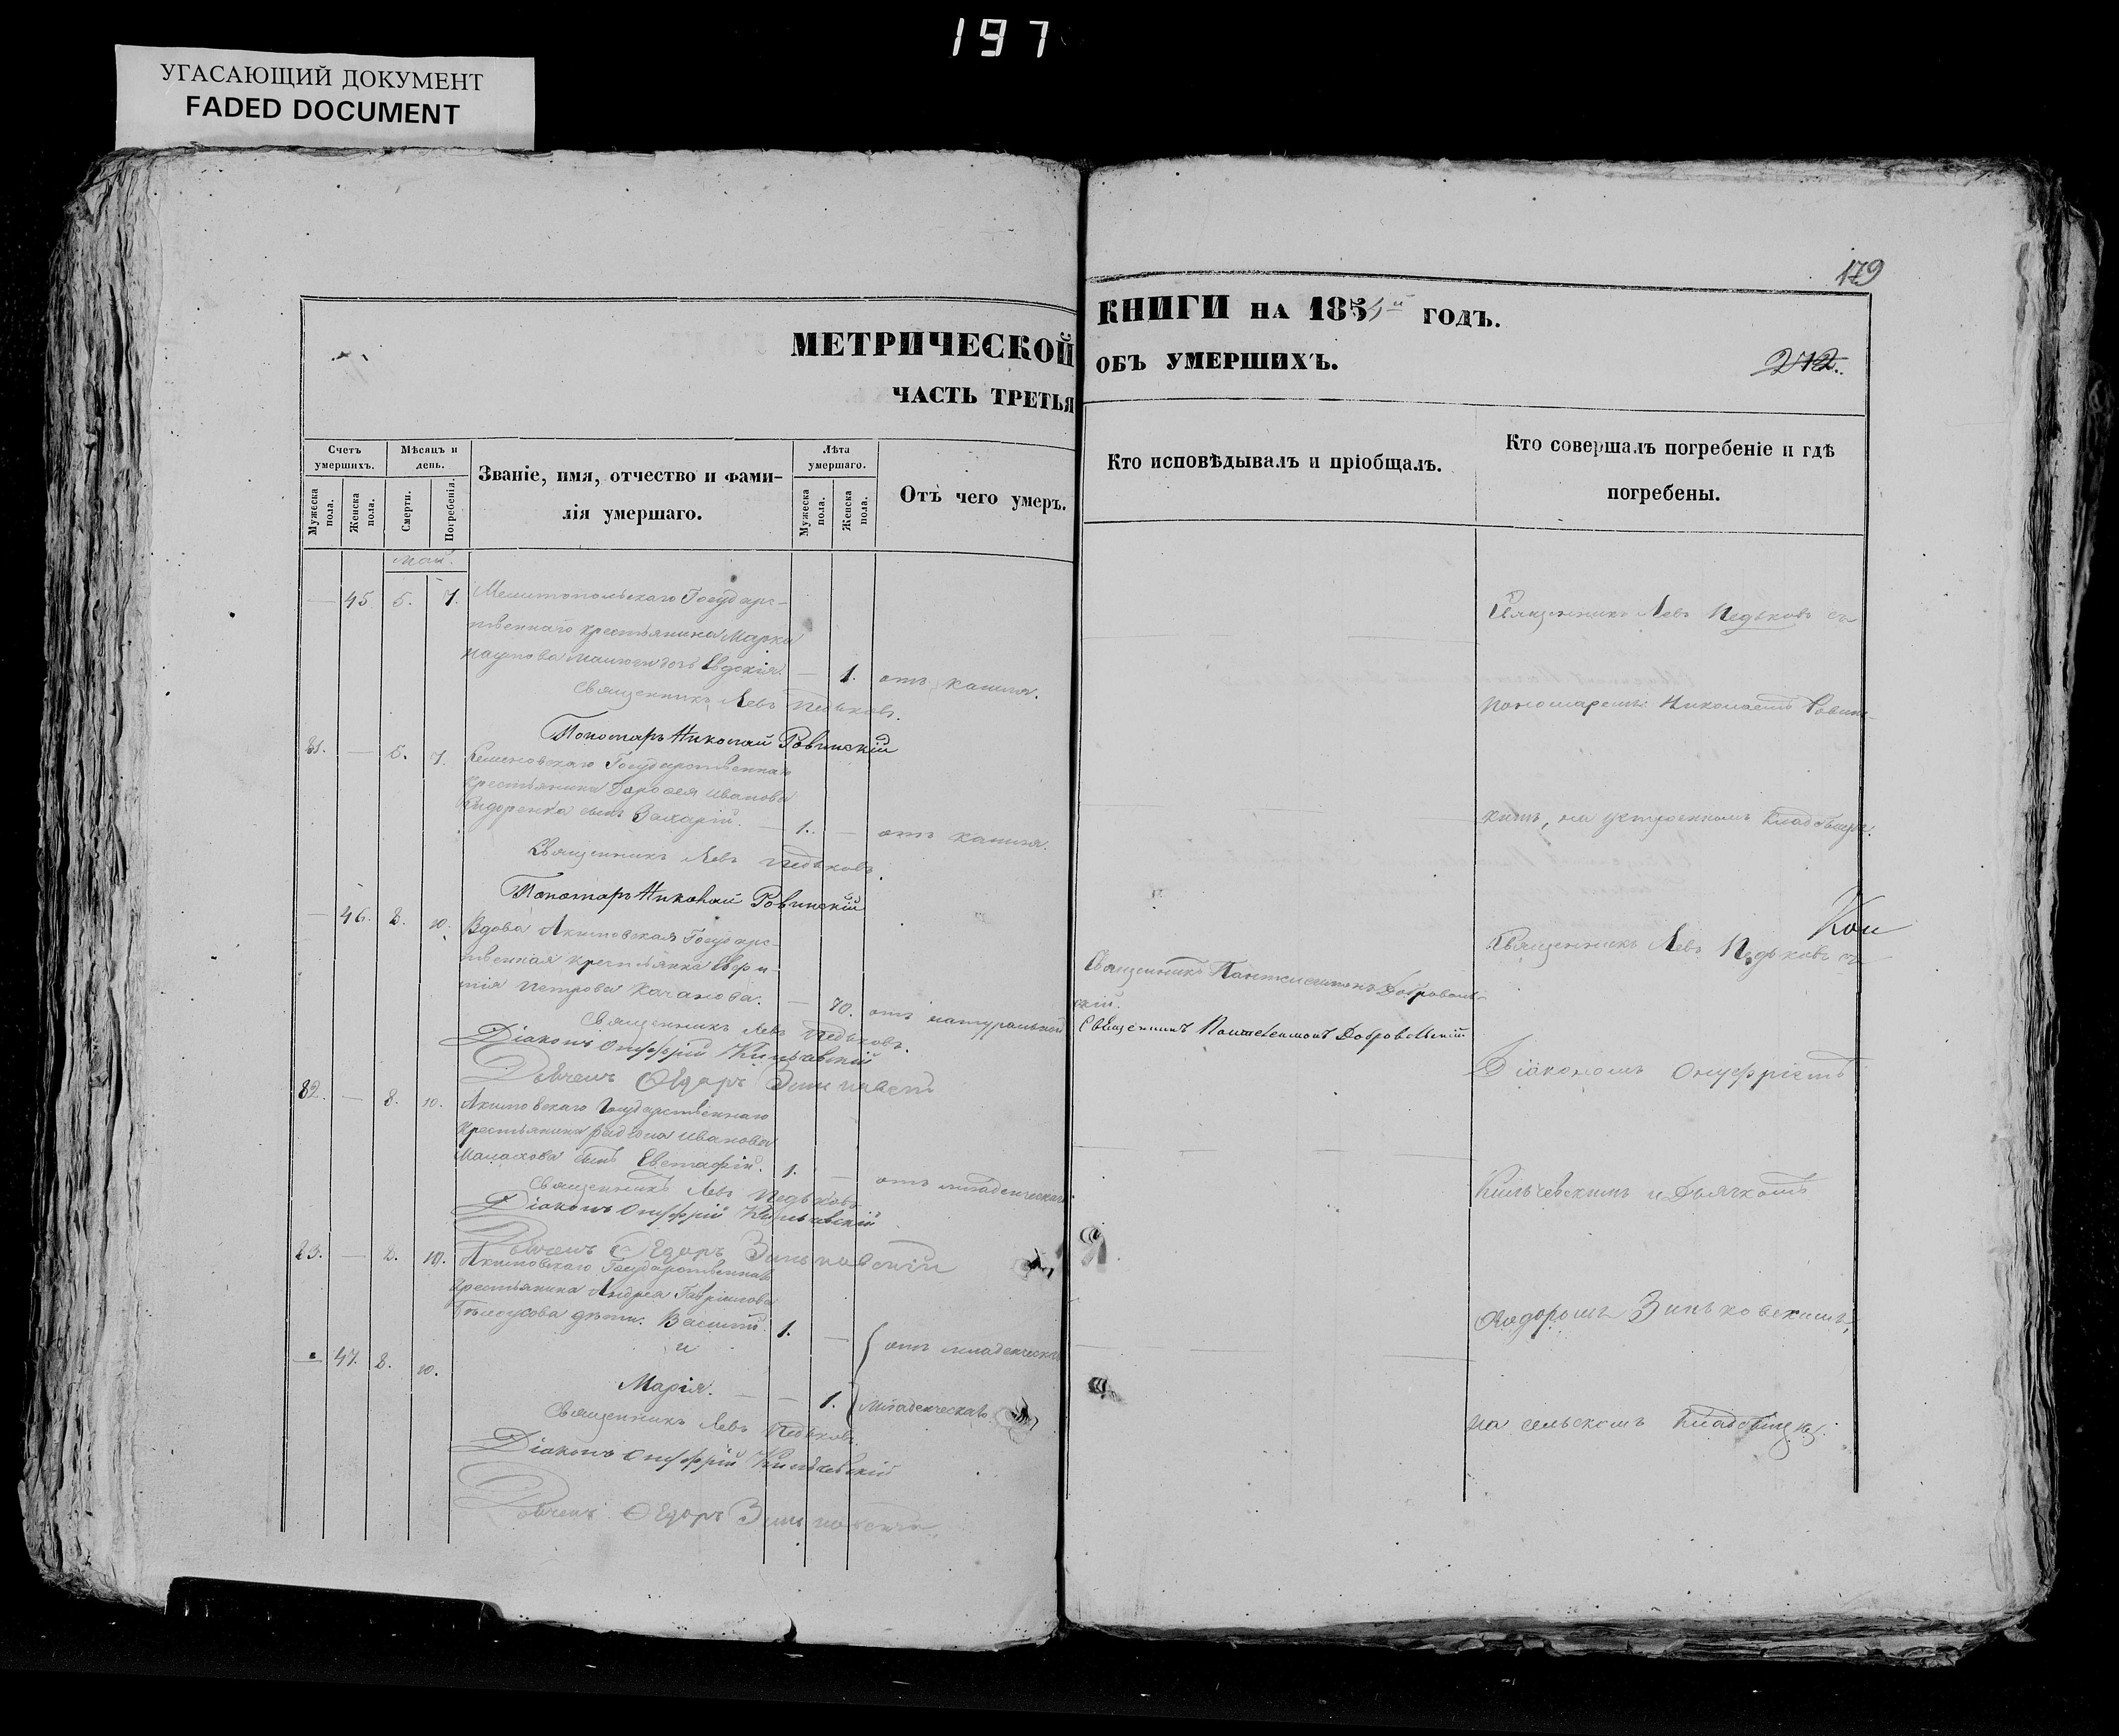 197
УГАСАЮЩИЙ ДОКУМЕНТ
FADED DOCUMENT
179
МЕТРИЧЕСКОЙ
ЧАСТЬ ТРЕТЬЯ
КНИГИ НА 185 й ГОДЪ.
ОБЪ УМЕРШИХЪ.
212.
Счетъ умершихъ.
Мужеска пола.
Женска пола.
Мѣсяцъ и день.
Смерти.
Погребенія.
Званіе, имя, отчество и фами-
лія умершаго.
Лѣта умершаго.
Мужеска пола.
Женска пола.
Отъ чего умеръ.
Кто исповѣдывалъ и пріобщалъ.
Кто совершалъ погребеніе и гдѣ
погребены.
Май.
— 45. 5. 7. Мелитопольскаго Государс-
твеннаго крестьянина Марка
Наумова дочь Евдокія. — 1. отъ кашля.
Священникъ Левъ Педьковъ.
Пономарь Николай Ровинскій
81. — 5. 7. Семеновскаго Государственнаго
крестьянина Дорофея Иванова
Сидоренка сынъ Захарій. — 1. — отъ кашля.
Священникъ Левъ Педьковъ.
Пономарь Николай Ровинскій
— 46. 8. 10. Вдова Акимовская Государс-
твенная крестьянка Евфи-
мія Петрова Качанова. — 70. отъ натуральной
Священникъ Левъ Педьковъ.
Діаконъ Онуфрій Кильчевскій
Дьячекъ Ѳедоръ Зиньковскій
82. — 8. 10. Акимовскаго Государственнаго
крестьянина Иванова
Малахова сынъ Евстафій. 1. — отъ младенческаго
Священникъ Левъ Педьковъ
Діаконъ Онуфрій Кильчевскій
Дьячекъ Ѳедоръ Зиньковскій
83. — 8. 10. Акимовскаго Государственнаго
крестьянина Андрея Гавриилова
Бѣлоусова дѣти: Василій 1. — отъ младенческаго
и
— 47. 8. 10. Марія. — — 1. младенческаго.
Священникъ Левъ Педьковъ.
Діаконъ Онуфрій Кильчевскій
Дьячекъ Ѳедоръ Зиньковскій
Священникъ Пантелеимонъ Доброволь-
скій.
Священникъ Пантелеимонъ Добровольскій
Священникъ Левъ Педьковъ съ
пономаремъ Николаемъ Ровинс-
кимъ, на устроенномъ кладбищѣ.
Кон
Священникъ Левъ Педьковъ съ
Діакономъ Онуфріемъ
Кильчевскимъ и Дьячкомъ
Ѳедоромъ Зиньковскимъ,
на сельскомъ кладбищѣ.